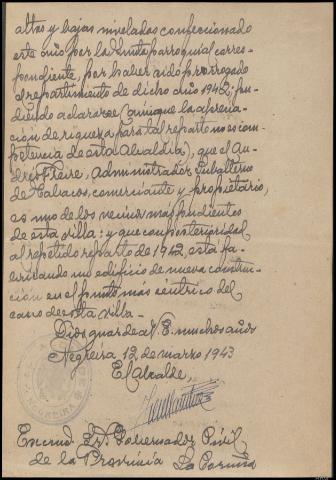 altas y bajas nivelados confeccionado
este año por la Junta parroquial corres-
pondiente, por haber sido prorrogado
el repartimiento de dicho año 1942; pu-
diendo aclararse (aunque la aprecia-
ción de riqueza para tal reparto no es com-
petencia de esta Alcaldía), que el An-
drés Freire, Administrador Subalterno
de Tabacos, comerciante y propietario,
es uno de los vecinos más pudientes
de esta villa: y que con posterioridad
al repetido reparto de 1942, está fa-
bricando un edificio de nueva construc-
ción en el punto más céntrico del
casco de esta villa.-
Dios guarde a V. E. muchos años
Negreira 12, de marzo 1943
El Alcalde,
Excmo. Sr. Gobernador Civil
de la Provincia La Coruña